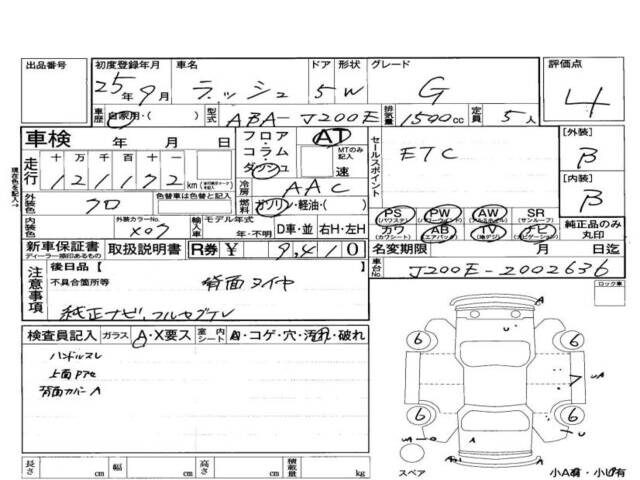 出品番号
初度登録年月 車名 ドア 形状 グレード 評価点
25年9月 ラッシュ 5 W G 4
車歴 自家用・( ) 型式 ABA-J200E 排気量 1500cc 定員 5人
車検 年 月 日
フロア・コラム・ダッシュ AT MTのみ記入 速
セールスポイント
ETC
[外装] B
[内装] B
走行 十万 万 千 百 十 一
121172 km
冷房 AAC
燃料 ガソリン・軽油・( )
外装色 クロ 色替車は色替と記入
内装色 外装カラーNo. X07 輸入車 モデル年式 年・不明 D車・並 右H・左H
PS (パワステ) PW (パワーウインド) AW (アルミホイル) SR (サンルーフ)
カワ (カワシート) AB (エアバッグ) TV (地デジ) ナビ (ナビゲーション)
純正品のみ丸印
新車保証書 ディーラー捺印あるもの 取扱説明書 R券 ¥ 9,410
名変期限 月 日迄
車台No. J200E-2002636
注意事項
後日品【
不具合箇所等 背面タイヤ
純正ナビ,フルセグTV
ロック車
検査員記入 ガラス A・X要ス 室内シート コゲ・穴・汚れ・破れ
ハンドルスレ
上面Pアセ
背面カバーA
A
U
6 6
UA
6 6
U
A A
スペア
小A有・小U有
長さ cm 幅 cm 高さ cm 積載量 kg
現在色を記入→